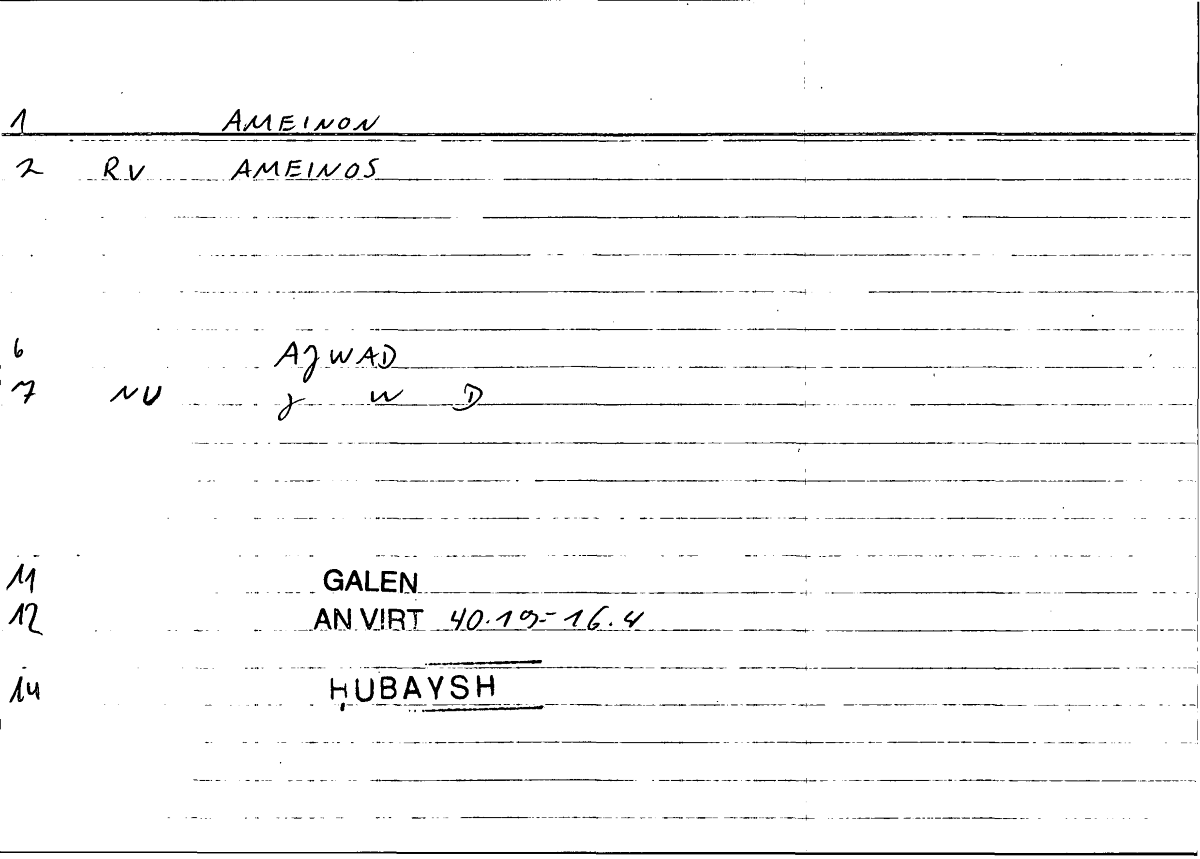 1 AMEINON
2 RV AMEINOS
6 AJWAD
7 NU J W D
11 GALEN
12 AN VIRT 40.19=16.4
14 ḤUBAYSH